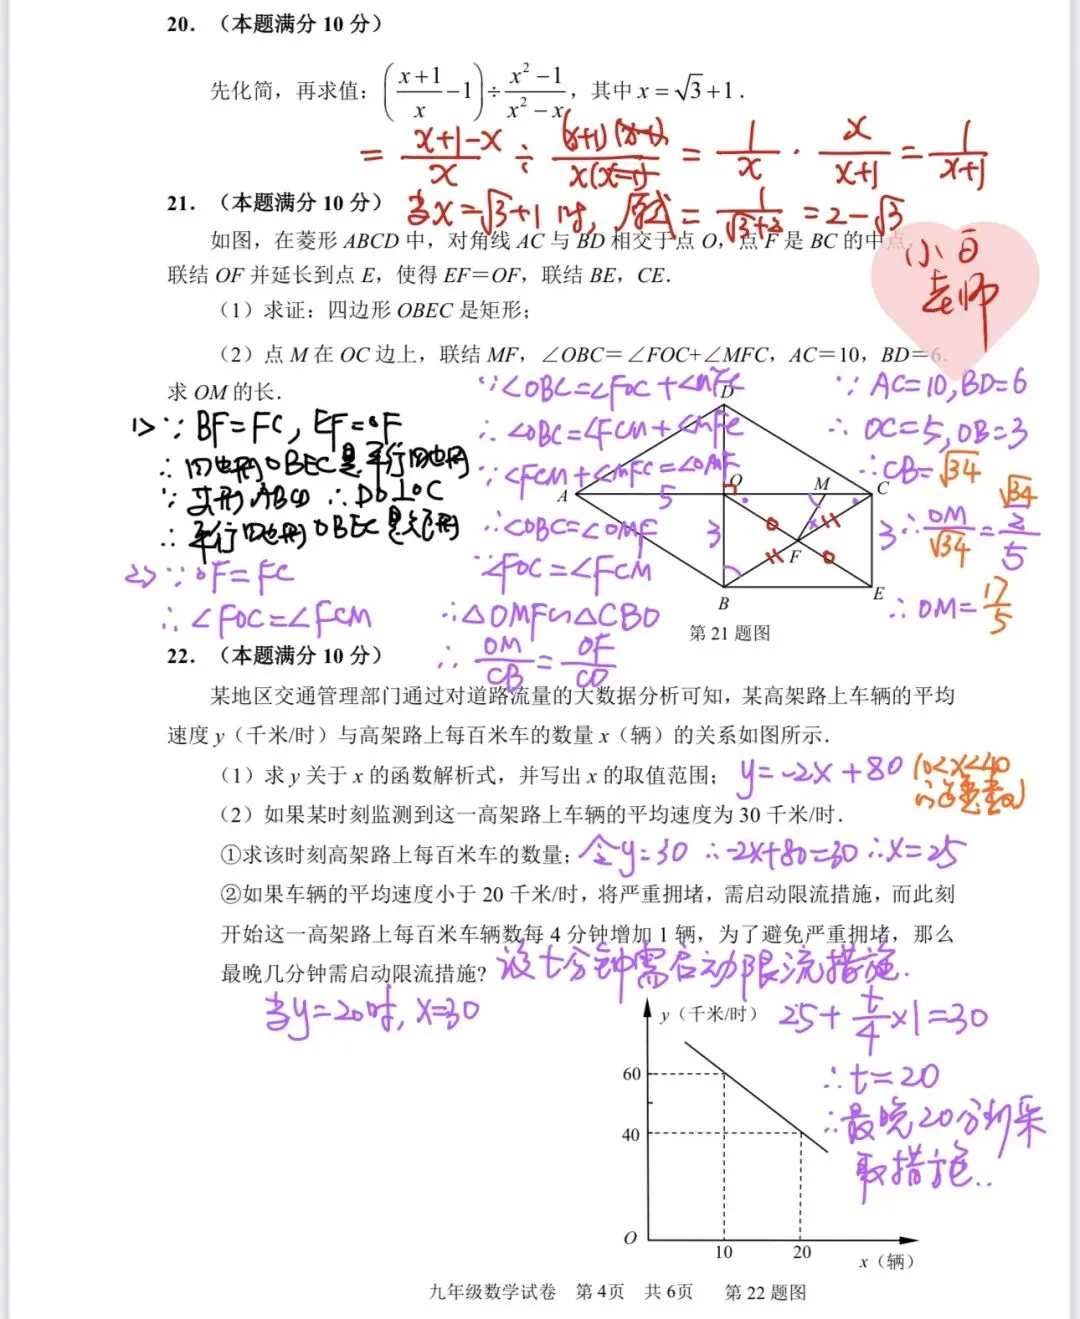 20. （本题满分 10 分）
先化简，再求值：((x+1)/x −1)÷(x²−1)/(x²−x)，其中 x＝√3＋1．
= (x+1-x)/x ÷ (x+1)(x-1)/x(x-1) = 1/x · x/(x+1) = 1/(x+1)
21. （本题满分 10 分） 当x=√3+1时，原式=1/(√3+2)=2-√3
如图，在菱形 ABCD 中，对角线 AC 与 BD 相交于点 O，点 F 是 BC 的中点，
小白
老师
联结 OF 并延长到点 E，使得 EF＝OF，联结 BE，CE．
（1）求证：四边形 OBEC 是矩形；
（2）点 M 在 OC 边上，联结 MF，∠OBC＝∠FOC+∠MFC，AC＝10，BD＝6．
求 OM 的长．
1> ∵BF=FC, EF=OF
∴四边形OBEC是平行四边形
∵菱形ABCD ∴DO⊥OC
∴平行四边形OBEC是矩形
2> ∵OF=FC
∴∠FOC=∠FCM
∵∠OBC=∠FOC+∠MFC
∴∠OBC=∠FCM+∠MFC
∵∠FCM+∠MFC=∠OMF
∴∠OBC=∠OMF
∵∠FOC=∠FCM
∴△OMF∽△CBO
∴OM/CB=OF/CO
∵AC=10,BD=6
∴OC=5,OB=3
∴CB=√34
∴OM/√34=(√34/2)/5
∴OM=17/5
D
A 5 O M C
3 3
F
B E
第 21 题图
22. （本题满分 10 分）
某地区交通管理部门通过对道路流量的大数据分析可知，某高架路上车辆的平均
速度 y（千米/时）与高架路上每百米车的数量 x（辆）的关系如图所示．
（1）求 y 关于 x 的函数解析式，并写出 x 的取值范围； y=-2x+80
（2）如果某时刻监测到这一高架路上车辆的平均速度为 30 千米/时．
①求该时刻高架路上每百米车的数量； 令y=30 ∴-2x+80=30 ∴x=25
②如果车辆的平均速度小于 20 千米/时，将严重拥堵，需启动限流措施，而此刻
开始这一高架路上每百米车辆数每 4 分钟增加 1 辆，为了避免严重拥堵，那么
最晚几分钟需启动限流措施? 设t分钟需启动限流措施.
当y=20时, x=30
25+t/4×1=30
∴t=20
∴最晚20分钟采
取措施..
y（千米/时）
60
40
O 10 20
x（辆）
九年级数学试卷 第 4页 共 6页 第 22 题图